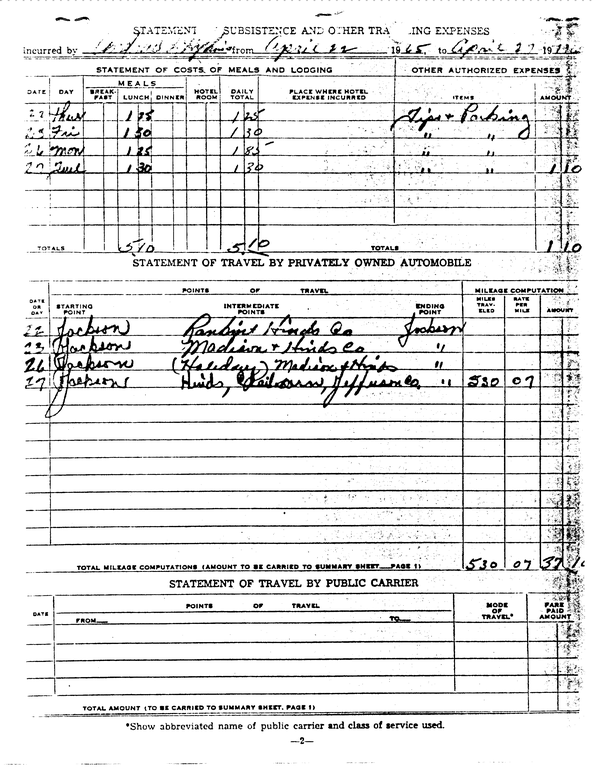 STATEMENT SUBSISTENCE AND OTHER TRA ING EXPENSES
incurred by from April 22 1965 to April 27 19
STATEMENT OF COSTS OF MEALS AND LODGING OTHER AUTHORIZED EXPENSES
MEALS
DATE DAY BREAK-FAST LUNCH DINNER HOTEL ROOM DAILY TOTAL PLACE WHERE HOTEL EXPENSE INCURRED ITEMS AMOUNT
22 Thur 1 25 1 25 Tips & Parking
23 Fri 1 30 1 30 " "
26 Mon 1 25 1 " "
27 Tue 1 30 1 30 " " 1 10
TOTALS 5 10 5 10 TOTALS 1 10
STATEMENT OF TRAVEL BY PRIVATELY OWNED AUTOMOBILE
POINTS OF TRAVEL MILEAGE COMPUTATION
DATE OR DAY STARTING POINT INTERMEDIATE POINTS ENDING POINT MILES TRAV-ELED RATE PER MILE AMOUNT
22 Jackson Rankin & Hinds Co Jackson
23 Jackson Madison & Hinds Co "
26 Jackson (Holiday) Madison & Hinds "
27 Jackson Hinds, Claiborne, Jefferson Co. " 530 07
TOTAL MILEAGE COMPUTATIONS (AMOUNT TO BE CARRIED TO SUMMARY SHEET PAGE 1) 530 07 37 10
STATEMENT OF TRAVEL BY PUBLIC CARRIER
DATE POINTS OF TRAVEL MODE OF TRAVEL* FARE PAID AMOUNT
FROM TO
TOTAL AMOUNT (TO BE CARRIED TO SUMMARY SHEET, PAGE 1)
*Show abbreviated name of public carrier and class of service used.
—2—